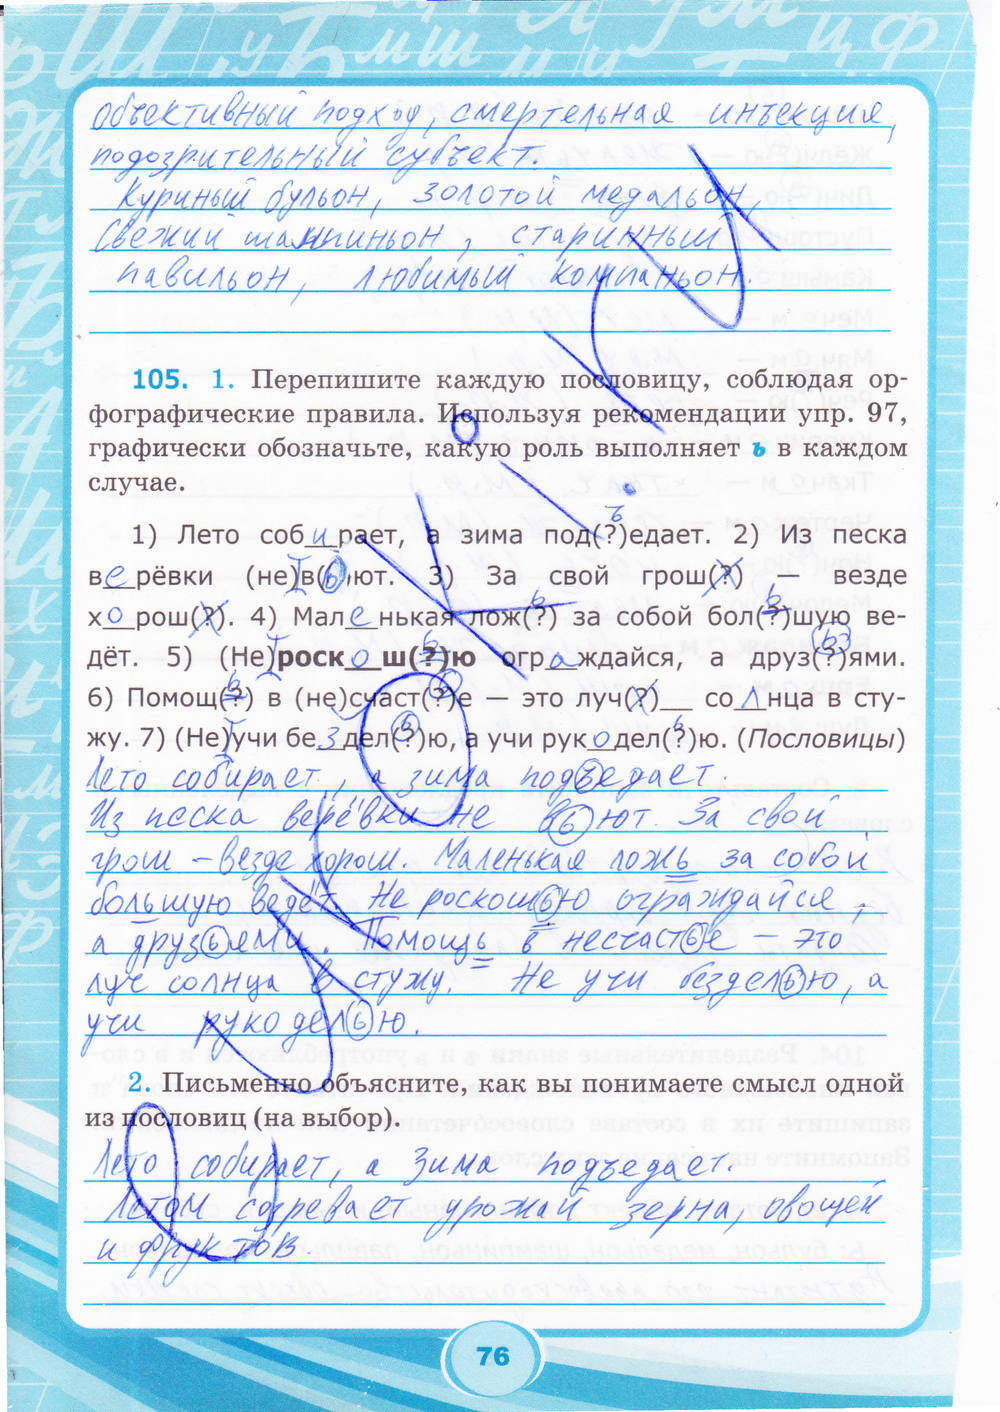 объективный подход, смертельная инъекция,
подозрительный субъект.
Куриный бульон, золотой медальон,
Свежий шампиньон, старинный
павильон, любимый компаньон.
105. 1. Перепишите каждую пословицу, соблюдая ор-
фографические правила. Используя рекомендации упр. 97,
графически обозначьте, какую роль выполняет ь в каждом
случае.
1) Лето соб_и_рает, а зима под(?)едает. 2) Из песка
в_е_рёвки (не)в(ь)ют. 3) За свой грош(?) — везде
х_о_рош(?). 4) Мал_е_нькая лож(?) за собой бол(?)шую ве-
дёт. 5) (Не)роск_о_ш(?)ю огр_а_ждайся, а друз(?)ями.
6) Помощ(?) в (не)счаст(?)е – это луч(?)__ со_л_нца в сту-
жу. 7) (Не)учи бе_з_дел(?)ю, а учи рук_о_дел(?)ю. (Пословицы)
Лето собирает, а зима подъедает.
Из песка верёвки не вьют. За свой
грош – везде хорош. Маленькая ложь за собой
большую ведёт. Не роскошью ограждайся,
а друзьями. Помощь в несчастье – это
луч солнца в стужу. Не учи безделью, а
учи рукоделью.
2. Письменно объясните, как вы понимаете смысл одной
из пословиц (на выбор).
Лето собирает, а зима подъедает.
Летом созревает урожай зерна, овощей
и фруктов.
76